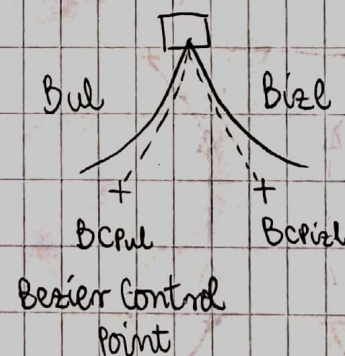 Bul
Bizl
BCPul
BCPizl
Bezier Control
point